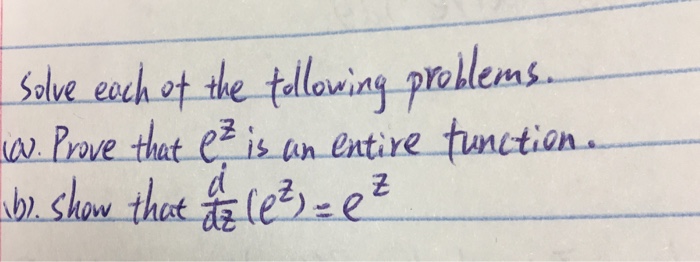 Solve each of the following problems.
(a). Prove that e^z is an entire function.
(b). Show that d/dz (e^z) = e^z